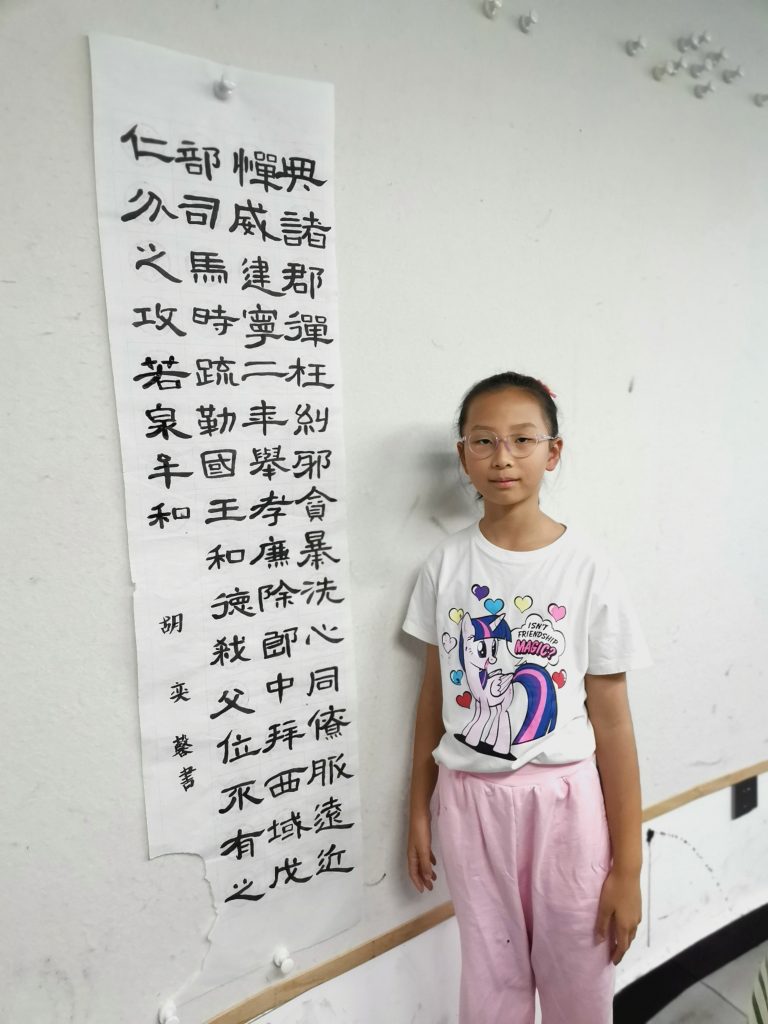 典諸郡彈枉糾邪貪暴洗心同僚服遠近
憚威建寧二年舉孝廉除郎中拜西域戊
部司馬時疏勒國王和德弒父位不有之
仁分之攻若泉牟和
胡奕馨書
ISN'T
FRIENDSHIP
MAGIC?